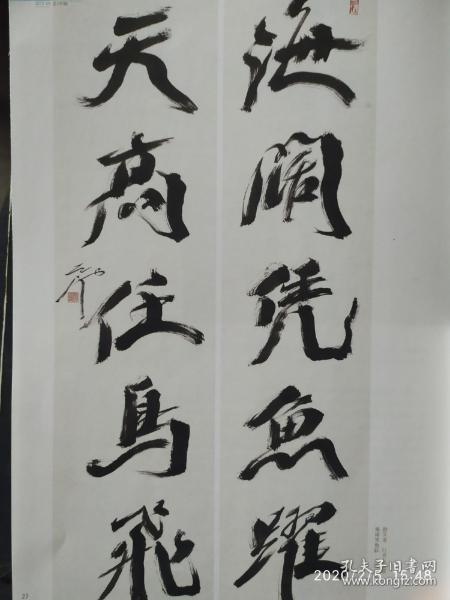 海阔凭鱼跃
天高任鸟飞
27
2020/2/5 16:48
孔夫子旧书网